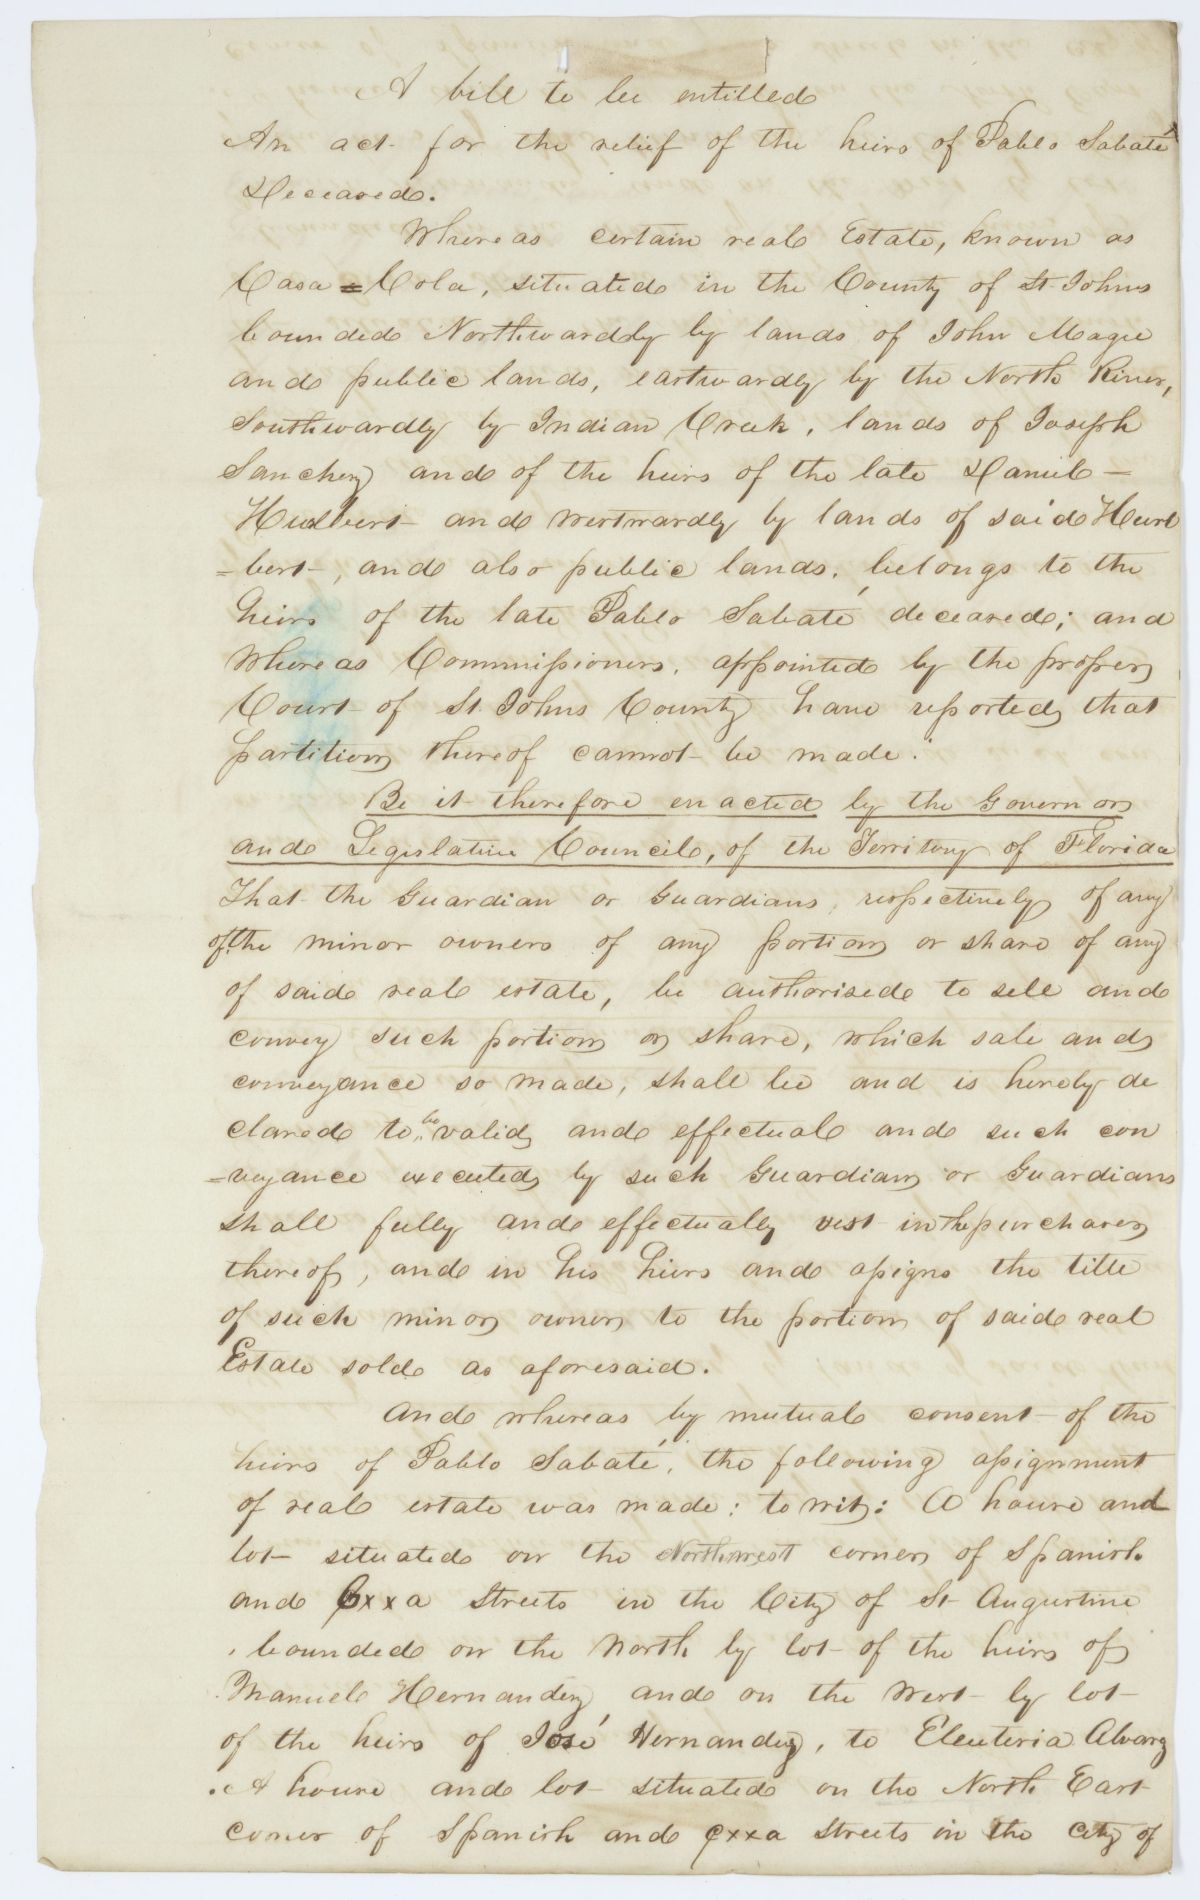 A bill to be entitled
An act for the relief of the heirs of Pablo Sabaté
Deceased.
Whereas certain real Estate, known as
Casa=Cola, situated in the County of St Johns
bounded Northwardly by lands of John Magee
and public lands, eastwardly by the North River,
Southwardly by Indian Creek, lands of Joseph
Sanchez and of the heirs of the late Daniel
Hurlbert and westwardly by lands of said Hurl
=bert, and also public lands, belongs to the
heirs of the late Pablo Sabaté deceased; and
Whereas Commissioners, appointed by the proper
Court of St. Johns County have reported that
partition thereof cannot be made:
Be it therefore enacted by the Governor
and Legislative Council, of the Territory of Florida
That the Guardian or Guardians, respectively of any
of the minor owners of any portion or share of any
of said real estate, be authorised to sell and
convey such portion or share, which sale and
conveyance so made, shall be and is hereby de
clared to be valid and effectual and such con
=veyance executed by such Guardian or Guardians
shall fully and effectually vest in the purchaser
thereof, and in his hiers and assigns the title
of such minor owner to the portion of said real
Estate sold as aforesaid.
And whereas by mutual consent of the
heirs of Pablo Sabaté, the following assignment
of real estate was made: to wit: A house and
lot situated on the Northwest corner of Spanish
and Cxxa Streets in the City of St Augustine
bounded on the North by lot of the heirs of
Manuel Hernandez and on the West by lot
of the heirs of José Hernandez, to Eleuteria Alvarez
A house and lot situated on the North East
corner of Spanish and Cxxa Streets in the City of